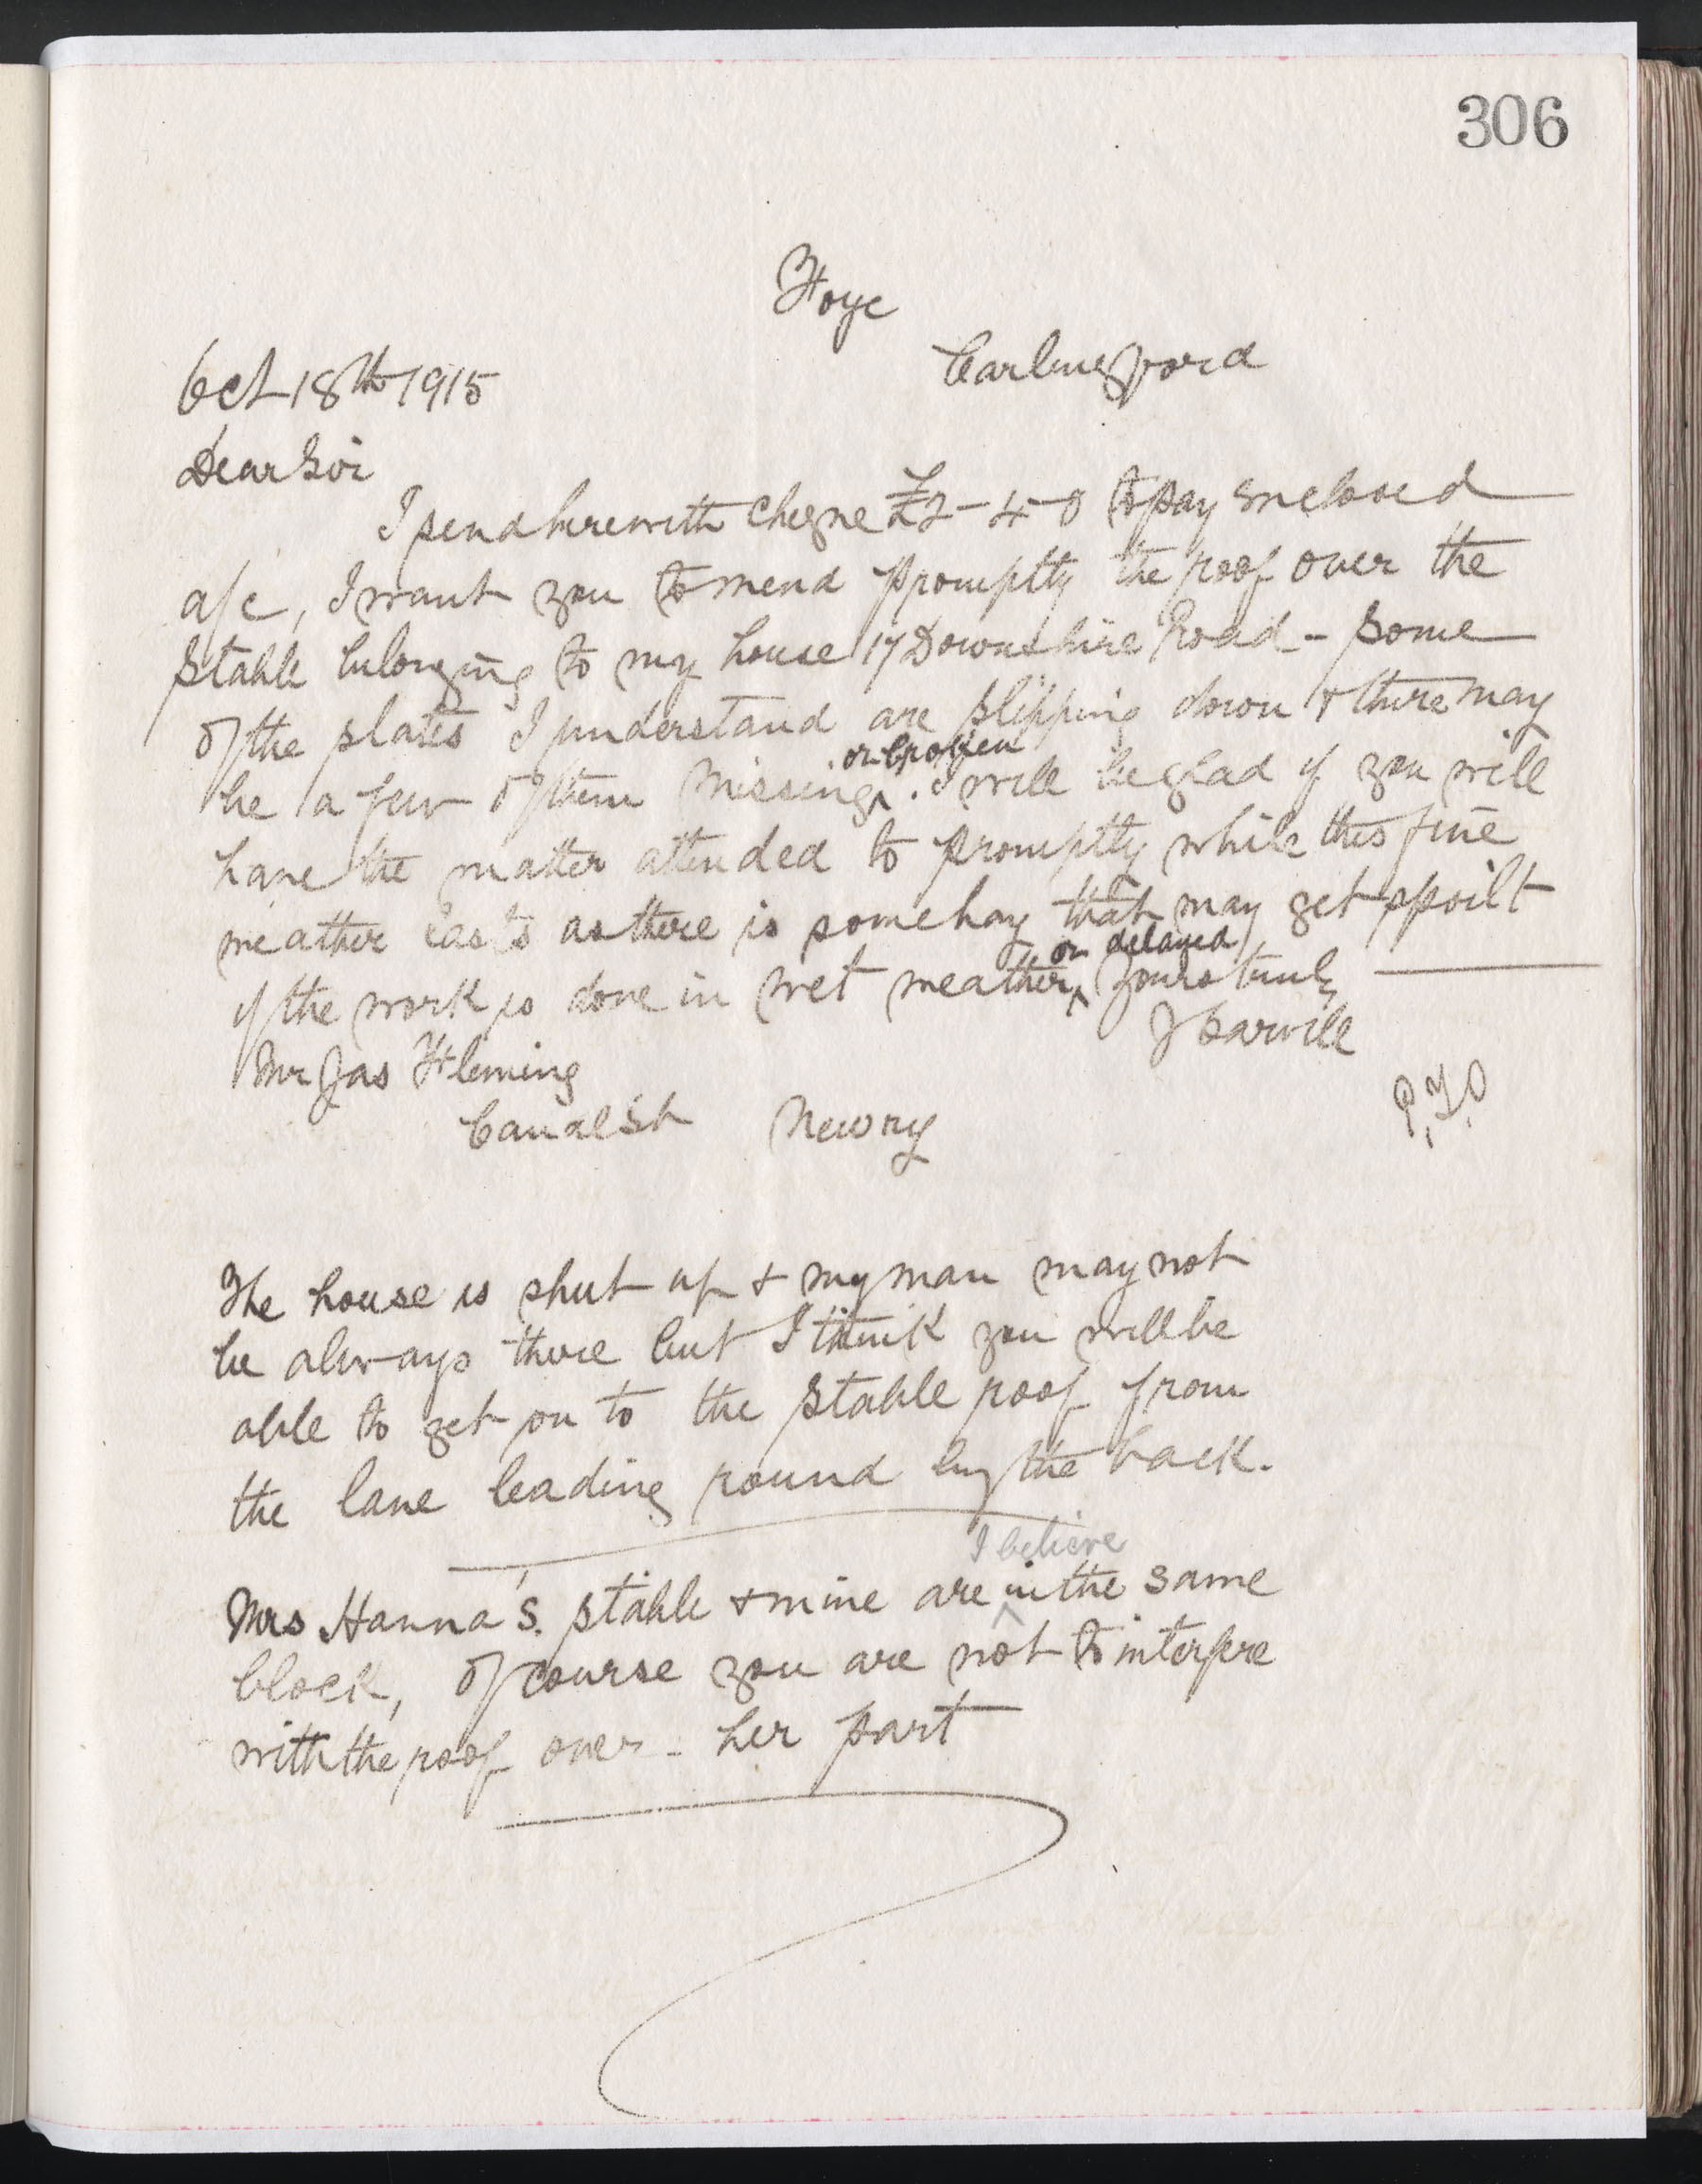 306
Foye
Carlingford
Oct 18th 1915
Dear Sir
I send herewith cheque £2-4-0 to pay enclosed
a/c, I want you to mend promptly the roof over the
stable belonging to my house 17 Downshire Road - some
of the slates I understand are slipping down & there may
or broken
be a few of them missing^. I will be glad if you will
have the matter attended to promptly while this fine
weather lasts as there is some hay that may get spoilt
or delayed
if the work is done in wet weather^ Yours truly
J Carvill
Mr Jas Fleming
Canal St Newry
P.T.O
The house is shut up & my man may not
be always there but I think you will be
able to get on to the stable roof from
the lane leading round by the back.
I believe
Mrs Hanna's stable & mine are ^ in the same
block, of course you are not to interfere
with the roof over - her part